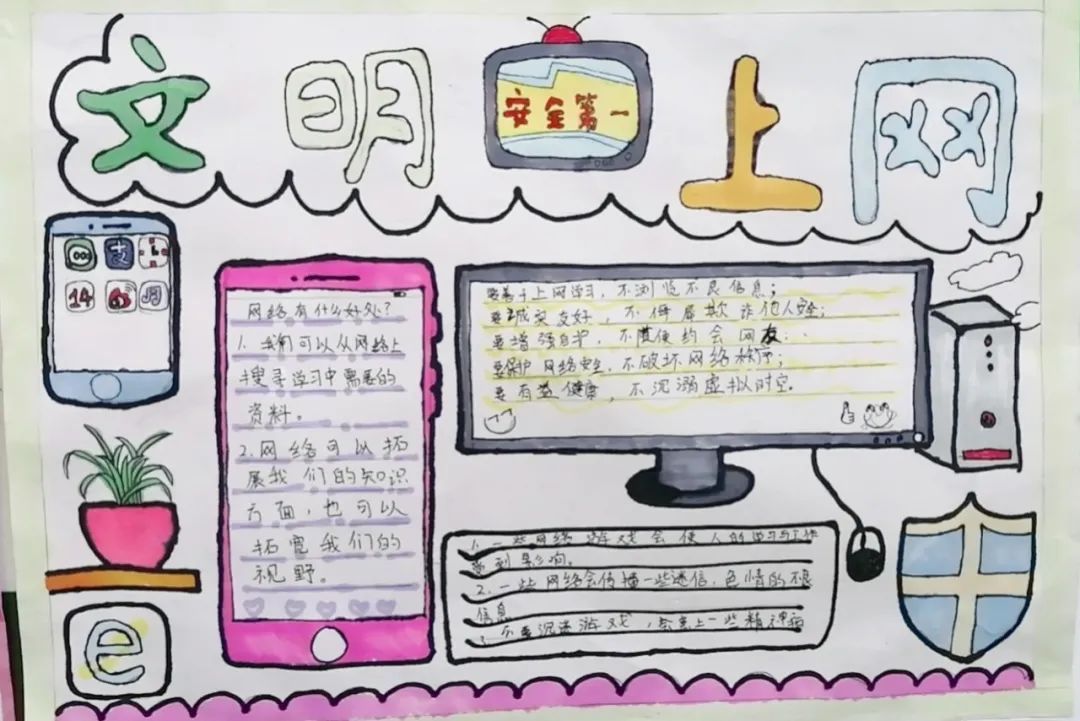 文明上网
安全第一
14
月
网络有什么好处?
1.我们可以从网络上
搜寻学习中需要的
资料。
2.网络可以拓
展我们的知识
方面,也可以
拓宽我们的
视野。
要善于上网学习,不浏览不良信息;
要诚实友好,不侮辱欺诈他人安全;
要增强自护,不随便约会网友;
要保护网络安全,不破坏网络秩序;
要有益健康,不沉溺虚拟时空.
1.一些网络游戏会使人的学习与工作
受到影响。
2.一些网络会传播一些迷信,色情的不良
信息
3.不要沉迷游戏,会患上一些精神病
e